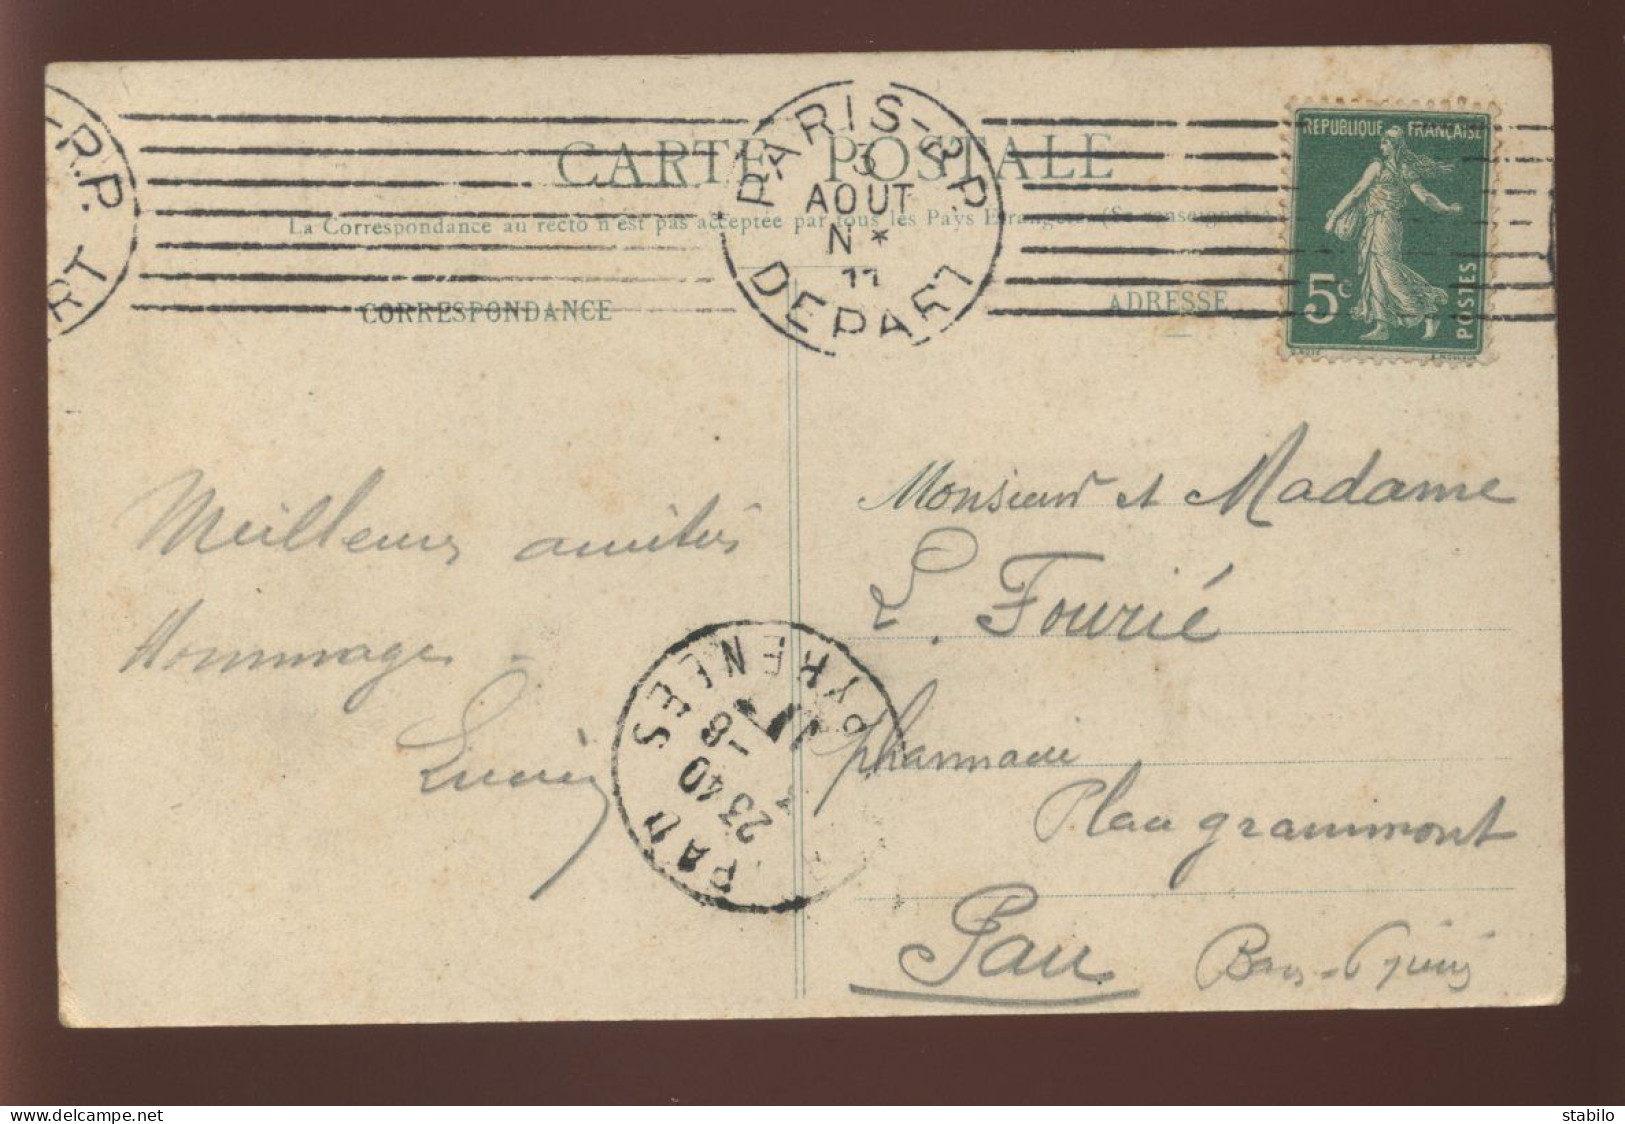 -R.P.
RT
PARIS-R.P.
3
AOUT
N*
11
DEPART
REPUBLIQUE FRANÇAISE
5c
POSTES
CARTE POSTALE
La Correspondance au recto n'est pas acceptée par tous les Pays Etrangers. (Se renseigner
CORRESPONDANCE
ADRESSE
Meilleures amitiés
Hommages -
Monsieur et Madame
L. Fourié
pharmacie
Place grammont
Pau Bses-Pyrénés
PAU
23 40
-8
PYRENEES
stabilo
delcampe.net